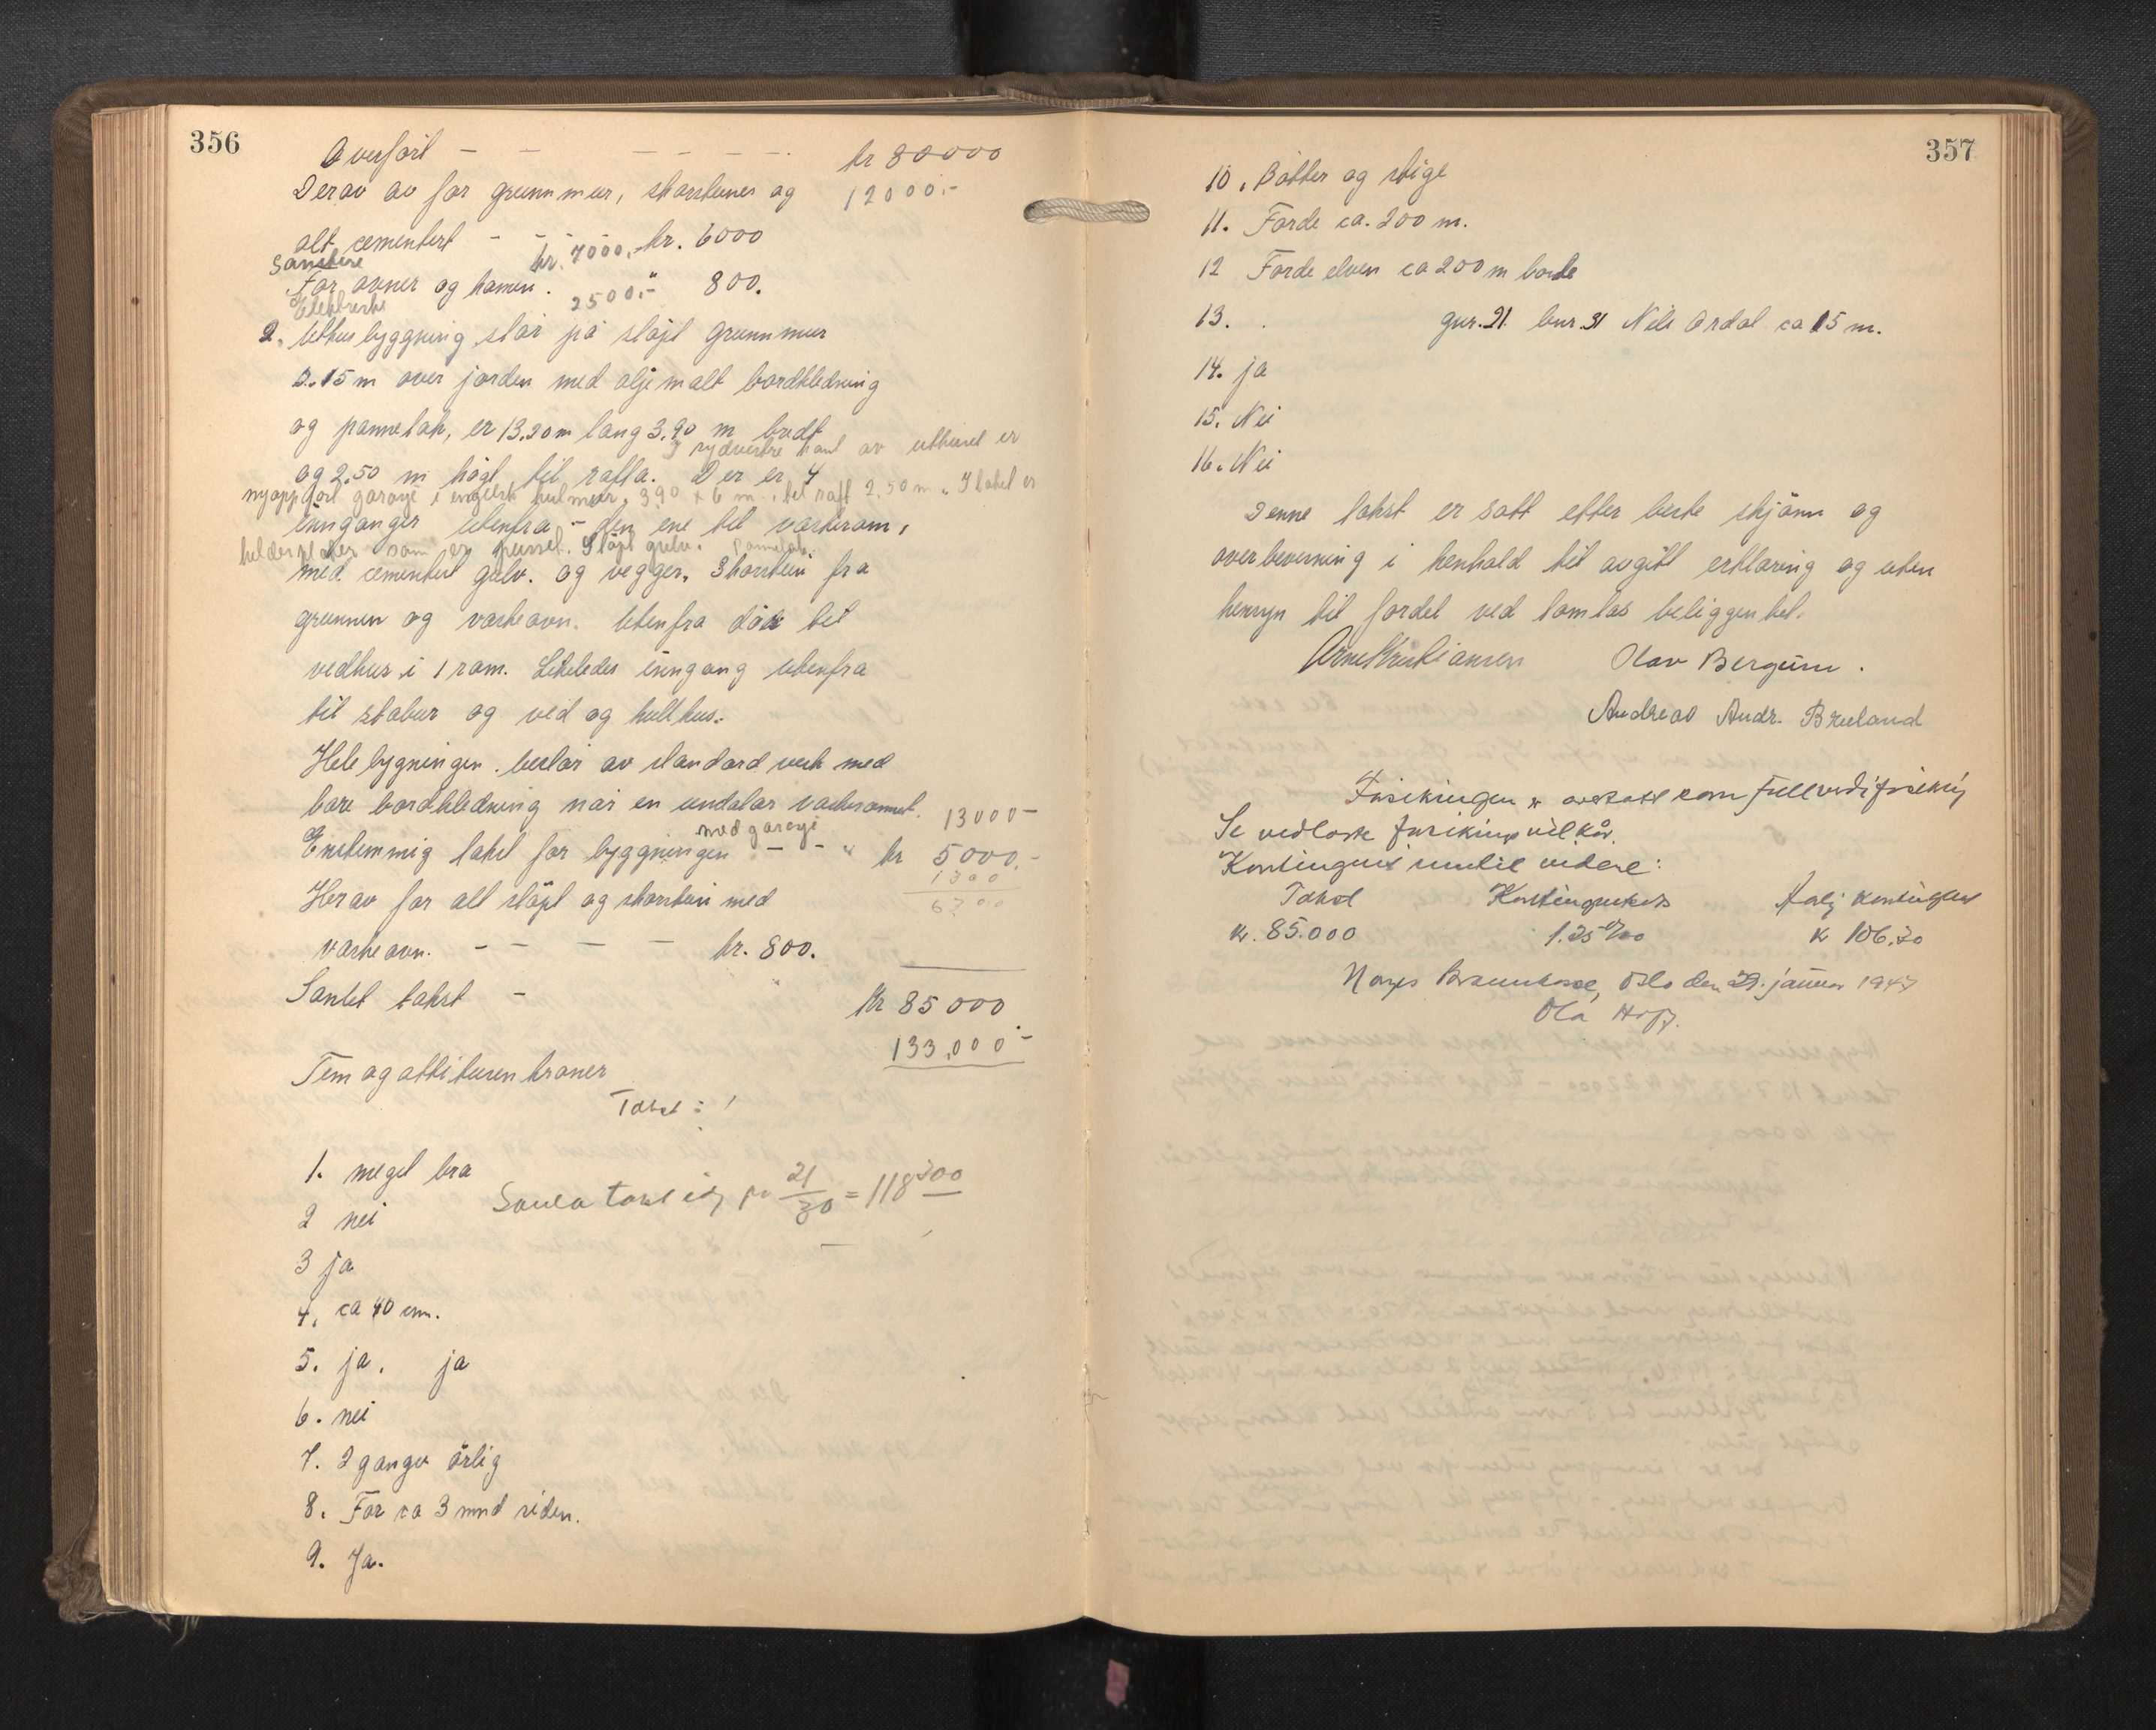 356
Overført - - - - - - - kr 80000
Derav av for grunnmur, skorstener og 12000.-
alt cementert - - - kr. 6000
Sanitære kr. 7000,-
For ovner og kamin. " 800.
Elektriske 2500.-
2. Uthusbyggning står på støpt grunnmur
0.15 m over jorden med oljemalt bordkledning
og pannetak, er 13.20 m lang 3.90 m bredt
I sydvestre kant av uthuset er
og 2.50 m høgt til rafta. Der er 4
nyoppført garasje i engelsk hulmur, 3.90 x 6 m, til raft 2.50 m. I taket er
innganger utenfra - den ene til vaskerom,
som er pusset. Støpt gulv. Pannetak.
med cementert gulv. og vegger. Skorstein fra
grunnen og vaskeovn. Utenfra dør til
vedhus i 1 rom. Likeledes inngang utenfra
til stabur og ved og kullhus.
Hele bygningen. består av standard verk med
bare bordkledning når en undtar vaskerommet. 13000-
med garasje
Enstemmig takst for byggningen - - " kr 5000.-
1300
Herav for alt støpt og skorstein med 6300
vaskeovn. - - - - kr. 800.
Samlet takst - " kr 85000
133,000.-
Fem og otti tusen kroner
Takst : !
1. meget bra
Samla takst pr 21/30 = 118300
2 nei
3 ja
4. ca 40 cm.
5. ja. ja
6. nei
7. 2 ganger årlig
8. For ca 3 mnd siden.
9. Ja.
357
10. Bøtter og stige
11. Førde ca. 200 m.
12 Førde elven ca 200 m borte
13. . gnr. 21. bnr. 31 Nils Ardal ca 15 m.
14. ja
15. Nei
16. Nei
Denne takst er satt etter beste skjønn og
overbevisning i henhold til avgitt erklæring og uten
hensyn til fordel ved tomtas beliggenhet.
Arne Kristiansen Olav Bergum.
Andreas Andr. Bruland
Forsikringen er avsatt som fullverdiforsikring
Se vedlagte forsikringsvilkår.
Kontingent inntil videre:
Takst Kontingentsats Årlig kontingent
kr. 85.000 1.25 ‰ kr 106.20
Norges Brannkasse, Oslo den 29. januar 1947